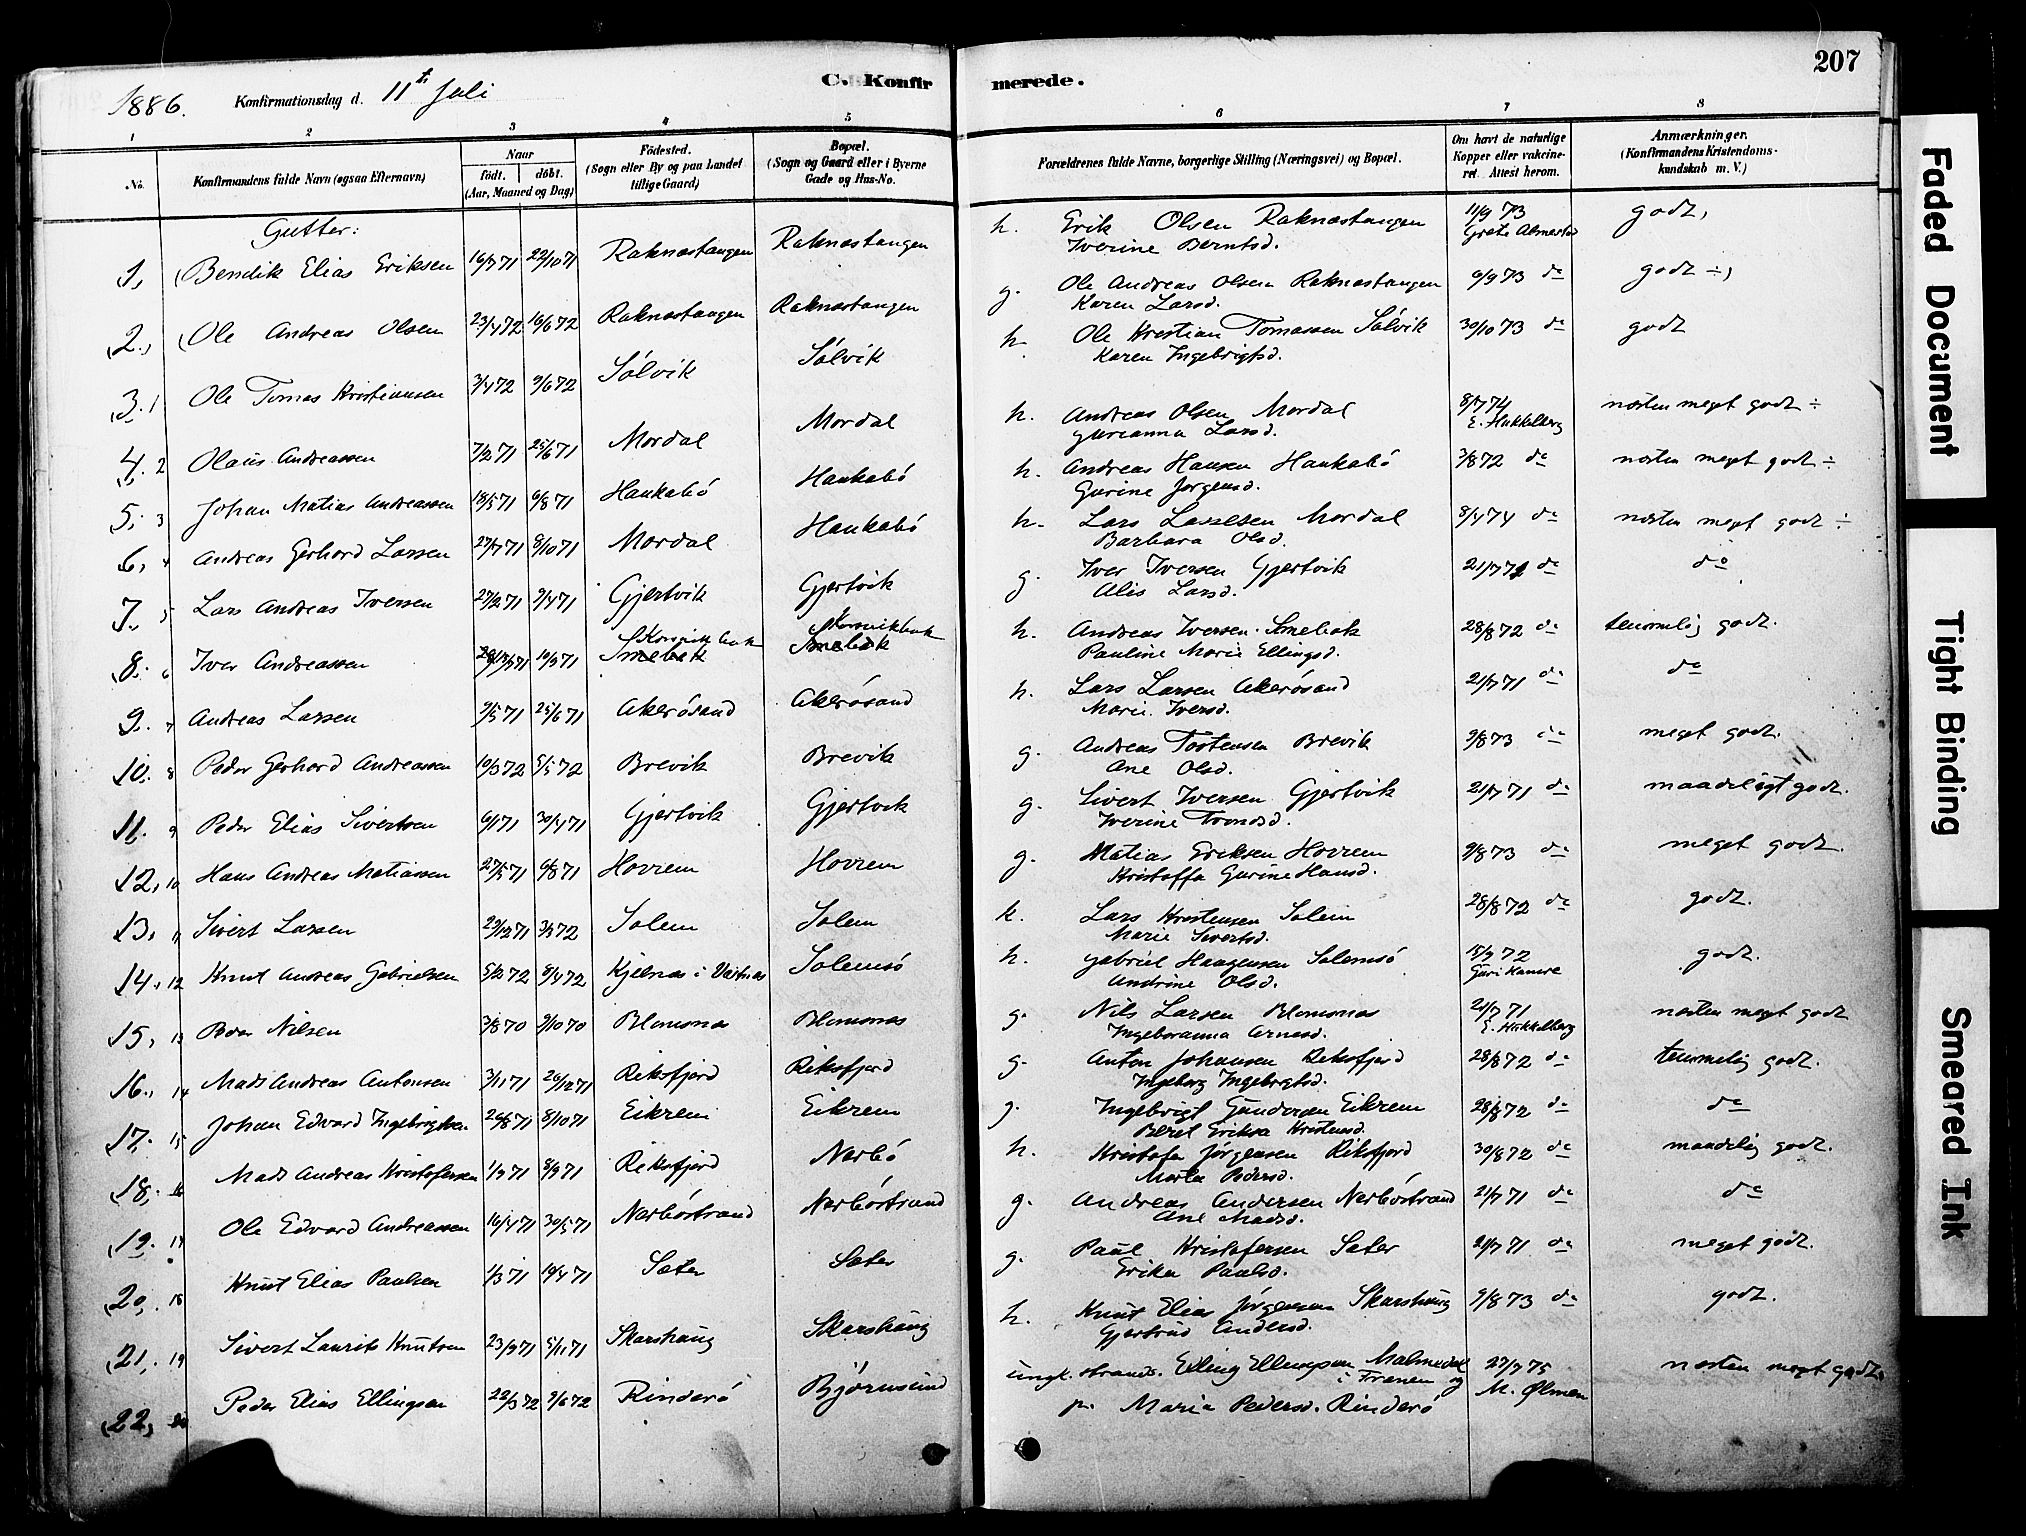 207
1886. Konfirmationsdag d. 11t Juli C. Konfir merede.
1 2 3 4 5 6 7 8
No. Konfirmandens fulde Navn (ogsaa Efternavn) Naar født. døbt. (Aar, Maaned og Dag) Fødested. (Sogn eller By og paa Landet tillige Gaard) Bopæl. (Sogn og Gaard eller i Byerne Gade og Hus-No. Forældrenes fulde Navne, borgerlige Stilling (Næringsvei) og Bopæl. Om havt de naturlige Kopper eller vakcineret. Attest herom. Anmærkninger. (Konfirmandens Kristendomskundskab m. V.)
Gutter:
1, Bendik Elias Eriksen 16/7 71 22/10 71 Raknæstangen Raknæstangen h. Erik Olsen Raknæstangen 11/9 73 godt,
Iverine Berntsd.
2., Ole Andreas Olsen 23/4 72 16/6 72 Raknæstangen Raknæstangen g. Ole Andreas Olsen Raknæstangen 9/9 73 do godt ÷,
Karen Larsd.
3. 1 Ole Tomas Kristiansen 3/4 72 9/6 72 Sølvik Sølvik h. Ole Krestian Tomassen Sølvik 30/10 73 do godt
Karen Ingebrigtsd.
4. 2 Olaus Andreassen 7/2 71 25/6 71 Mordal Mordal h. Andreas Olsen Mordal 8/7 74 E. Hukkelberg næsten meget godt ÷
Gurianna Larsd.
5, 3 Johan Matias Andreassen 18/5 71 6/8 71 Haukabø Haukabø h. Andreas Hansen Haukabø 3/8 72 do næsten meget godt ÷
Gurine Jørgensd.
6, 4 Andreas Gerhard Larsen 27/7 71 8/10 71 Mordal Haukabø h. Lars Larsen Mordal 8/7 74 do næsten meget godt ÷
Barbara Olsd.
7. 5 Lars Andreas Iversen 27/2 71 9/4 71 Gjertvik Gjertvik g. Iver Iversen Gjertvik 21/7 71 do do
Alis Larsd.
8. 6 Iver Andreassen 10/9 71 Smebak Smebak h. Andreas Iversen Smebak 28/8 72 do temmelig godt.
Pauline Marie Ellingsd.
9. 7 Andreas Larsen 9/5 71 25/6 71 Akerøsand Akerøsand h. Lars Larsen Akerøsand 21/7 71 do do
Marie Iversd.
10. 8 Peder Gerhard Andreassen 10/3 72 5/5 72 Brevik Brevik g. Andreas Tostensen Brevik 9/8 73 do meget godt.
Ane Olsd.
11. 9 Peder Elias Sivertsen 6/1 71 30/4 71 Gjertvik Gjertvik g. Sivert Iversen Gjertvik 21/7 71 do maadeligt godt.
Iverine Tomasd.
12, 10 Hans Andreas Matiassen 27/5 71 6/8 71 Hovrem Hovrem g. Matias Eriksen Hovrem 9/8 73 do meget godt.
Kristoffa Gurine Hansd.
13, 11 Sivert Larsen 29/12 71 3/3 72 Solem Solem k. Lars Kristensen Solem 28/8 72 do godt.
Marie Sivertsd.
14., 12 Knut Andreas Gabrielsen 5/2 72 8/4 72 Kjelnæs i Veitnæs Solemsø h. Gabriel Haagensen Solemsø 15/7 72 Guri godt.
Andrine Olsd.
15, 13 Peder Nilsen 3/8 70 9/10 70 Blomsnæs Blomsnæs g. Nils Larsen Blomsnæs 21/7 71 E. Hukkelberg næsten meget godt
Ingeboranna Arnesd.
16., 14 Mads Andreas Antonsen 3/11 71 26/12 71 Riksfjord Riksfjord g. Anton Johansen Riksfjord 28/8 72 do temmelig godt.
Ingeborg Ingebrigtsd.
17. 15 Johan Edvard Ingebrigtsen 20/8 71 8/10 71 Eikrem Eikrem g. Ingebrigt Gundersen Eikrem 28/8 72 do do
Beret Eriksa Kristensd.
18, 16 Mads Andreas Kristofersen 1/7 71 8/9 71 Riksfjord Nerbø h. Kristofer Jørgensen Riksfjord 30/8 72 do maadelig godt.
Marta Pedersd.
19. 17 Ole Edvard Andreassen 16/4 71 30/5 71 Nerbøstrand Nerbøstrand g. Andreas Andersen Nerbøstrand 21/7 71 do do
Ane Madsd.
20, 18 Knut Elias Paulsen 1/3 71 10/4 71 Sæter Sæter g. Paul Kristofersen Sæter 21/7 71 do meget godt.
Erika Paulsd.
21, 19 Sivert Laurits Knutsen 23/9 71 5/11 71 Skarshaug Skarshaug h. Knut Elias Jørgensen Skarshaug 9/8 73 do godt.
Gjertrud Andersd.
22, 20 Peder Elias Ellingsen 22/3 72 9/6 72 Rinderø Bjørnsund ungk. Elling Ellingsen Malmedal i Frænen og 27/7 75 M. Ølmen næsten meget godt.
p. Maria Pedersd. Rinderø
Faded Document
Tight Binding
Smeared Ink